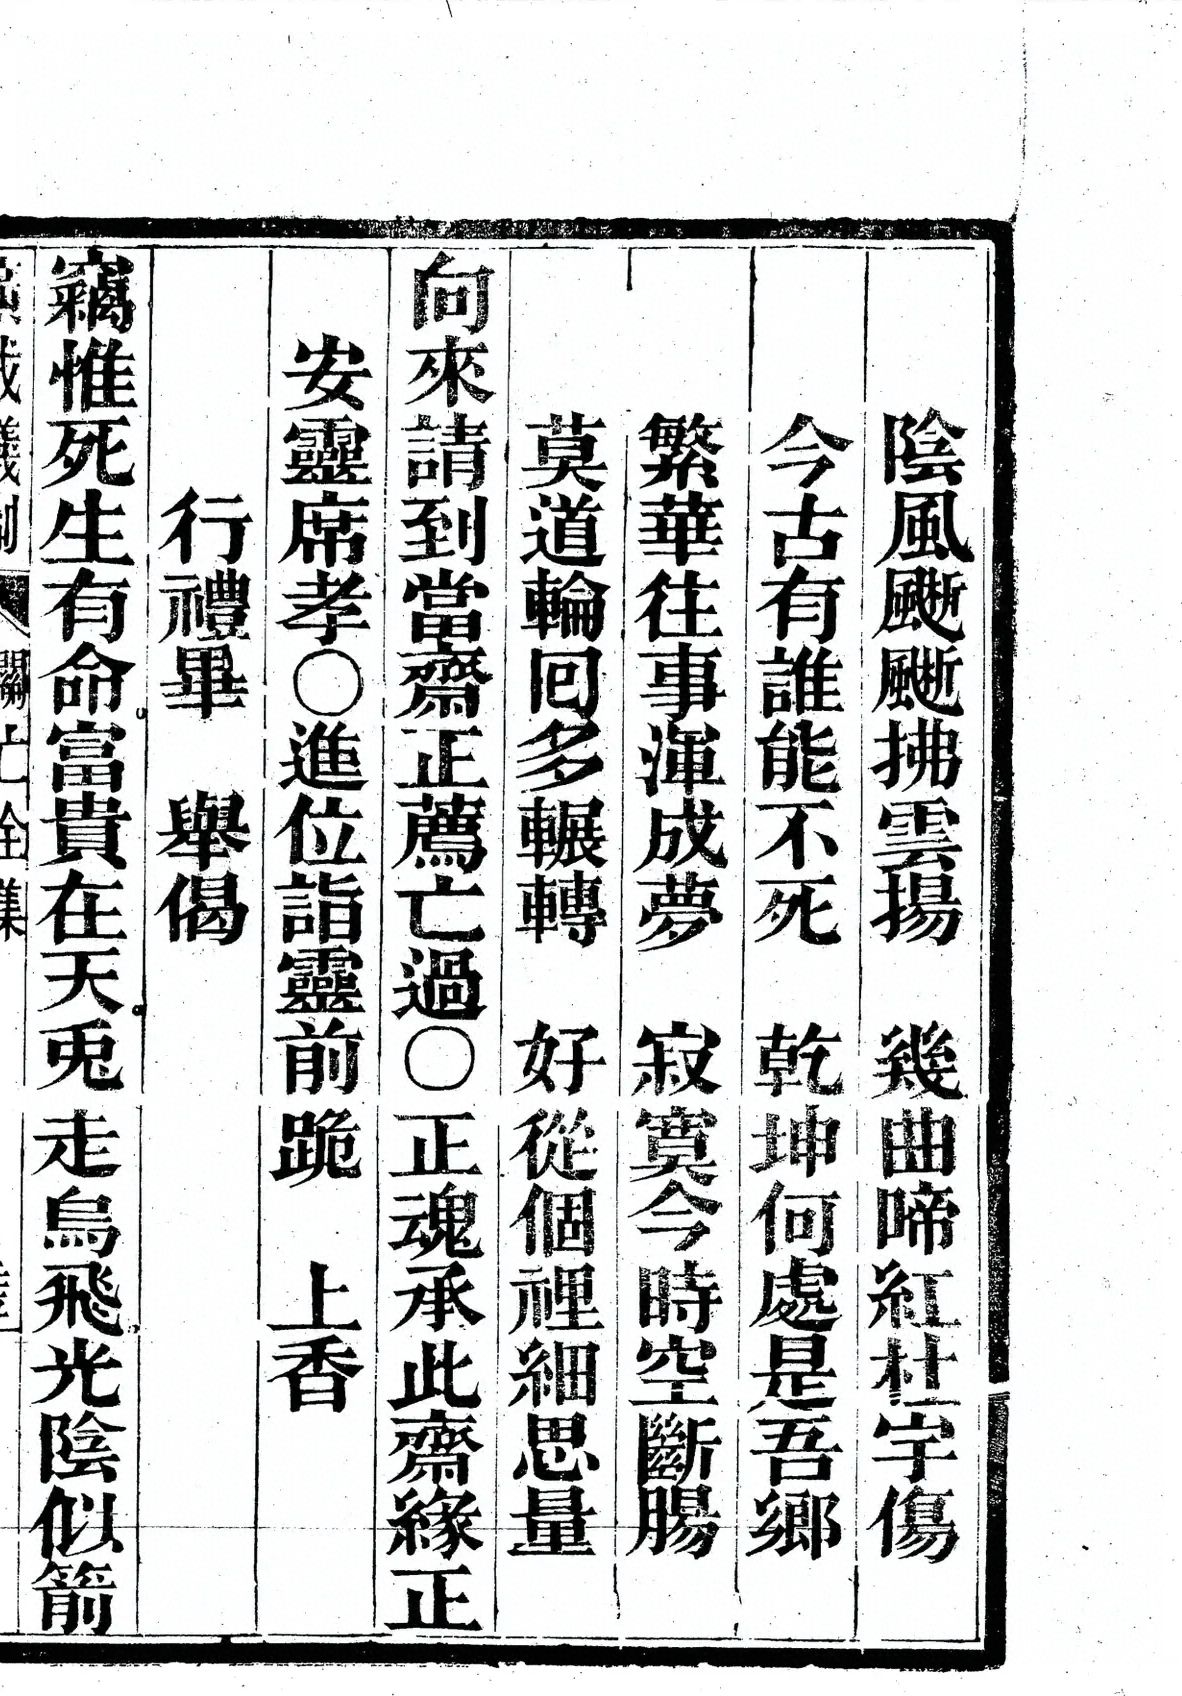 陰風颴颴拂雲揚　幾曲啼紅杜宇傷
今古有誰能不死　乾坤何處是吾鄉
繁華往事渾成夢　寂寞今時空斷腸
莫道輪回多輾轉　好從個裡細思量
向來請到當齋正薦亡過○正魂承此齋緣正
安靈席孝○進位詣靈前跪　上香
行禮畢　舉偈
竊惟死生有命富貴在天兎走烏飛光陰似箭